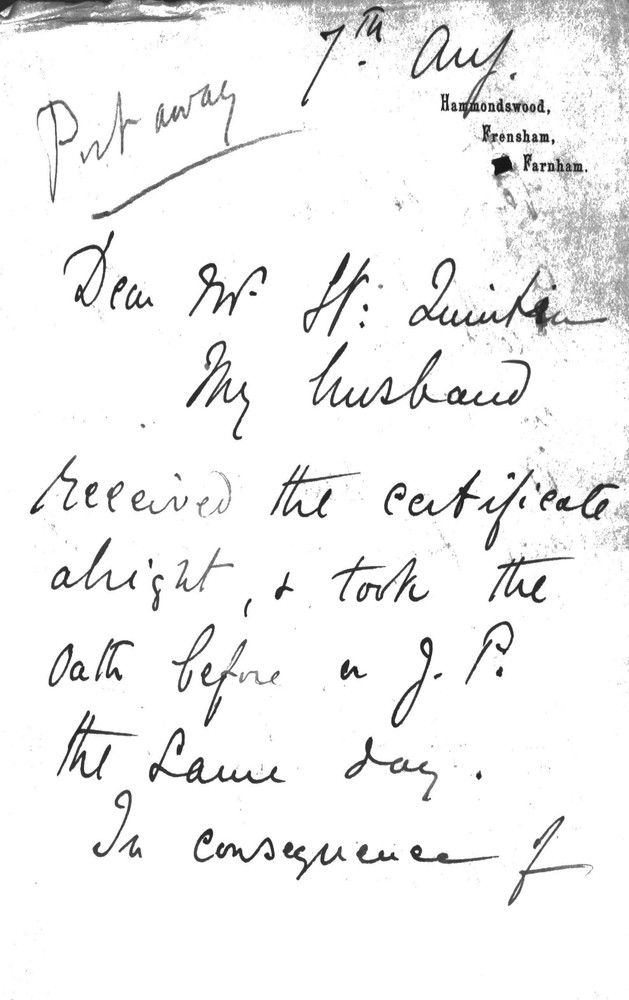 7th Aug.
Put away
Hammondswood,
Frensham,
Farnham.
Dear Mr St: Quintin
My husband
received the certificate
alright, & took the
oath before a J. P.
the same day.
In consequence of